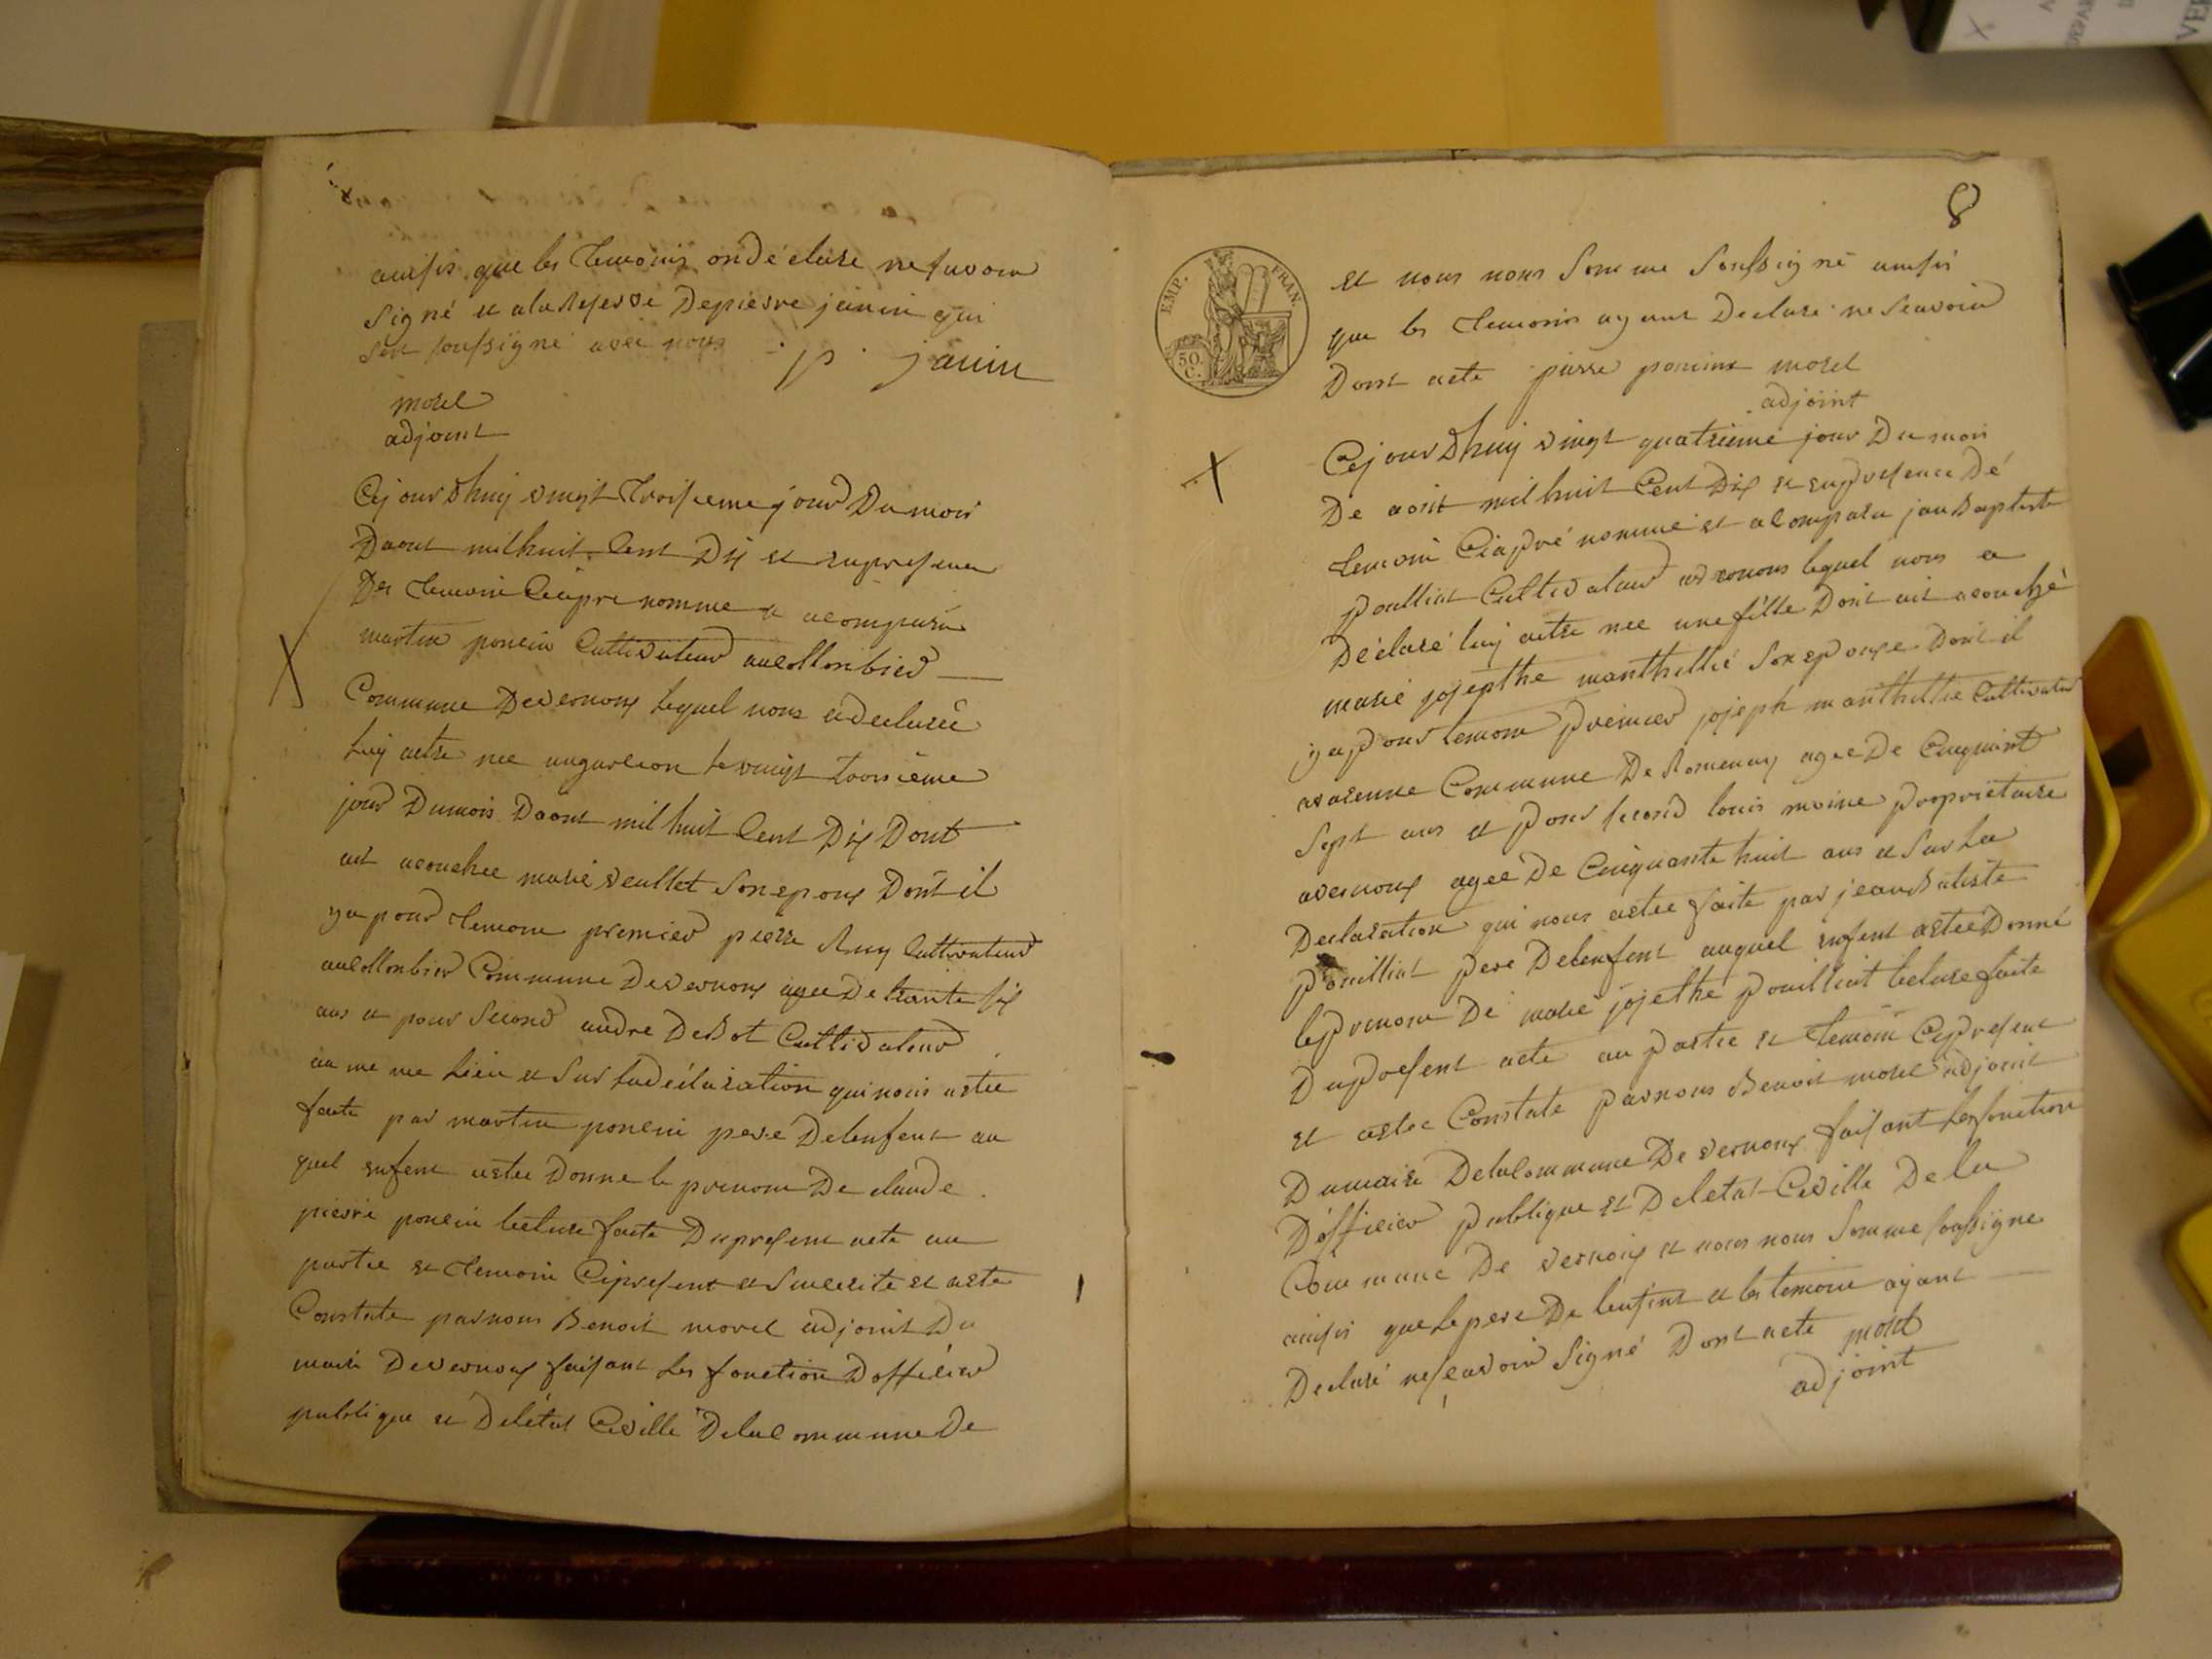 ainsis que les temoins on déclare ne savoir
signé et a la reserve de pierre janin qui
sest soussigné avec nous p. janin
morel
adjoint
Cejourdhuy vingt troisieme jour du mois
Daout mil huit Cent Dix et en presence
Des temoin Ciapre nomme et a comparu
martin poncin Cultivateur au collonbier
Commune De vernoux lequel nous a declaree
luy aetre nee un garcon le vingt troisieme
jour Dumois Daout mil huit Cent Dix Dont
ait acouchee marie veullet son epoux Dont il
ya pour temoin premier pierre Ruy Cultivateur
au collonbier Commune De vernoux agee De trante six
ans et pour second andre DeBot Cultivateur
au me me lieu et sur la déclaration qui nous astee
faite par martin poncin pere De lenfent au
quel enfent astee Donne le prenom De claude
pierre poncin lecture faite Du present acte au
partie et temoin Ci present et et aste
Constate par nous Benoit morel adjoint Du
maire De vernoux faisant les fonction Dofficier
publique et De létat Civille De la commune De
8
EMP. FRAN.
50. C.
et nous nous somme soussigné ainsis
que les temoins ayant Declare ne scavoir
Dont acte morel
adjoint
Cejourdhuy vingt quatrieme jour Du mois
De aout mil huit Cent Dix et en presence Dé
temoin Ciapré nommé et a comparu jan Baptiste
pouilliat Cultivateur a vernous lequel nous a
Déclaré luy aetre nee une fille Dont ait acouché
marie josepthe manthellié son epouse Dont il
ya pour temoin premier joseph manthellie Cultivateur
Commune De Romenay agee De Cinquant
sept ans et pour second louis moine proprietaire
a vernoux agee De Cinquante huit ans et sur la
Declaration qui nous astee faite par jean Batiste
pouilliat pere De lenfent auquel enfent astee Donné
le prenom De marie jojethe pouilliat lecture faite
Du present acte au partie et temoin Ci present
et astee Constate par nous Benoit morel adjoint
Du maire De la Commune De vernoux faisant les fonction
Dofficier publique et De letat Civille De la
Commune De vernoux et nous nous somme soussigne
ainsis que le pere De lenfent et les temoin ayant
Declaré ne scavoir signé Dont acte morel
adjoint